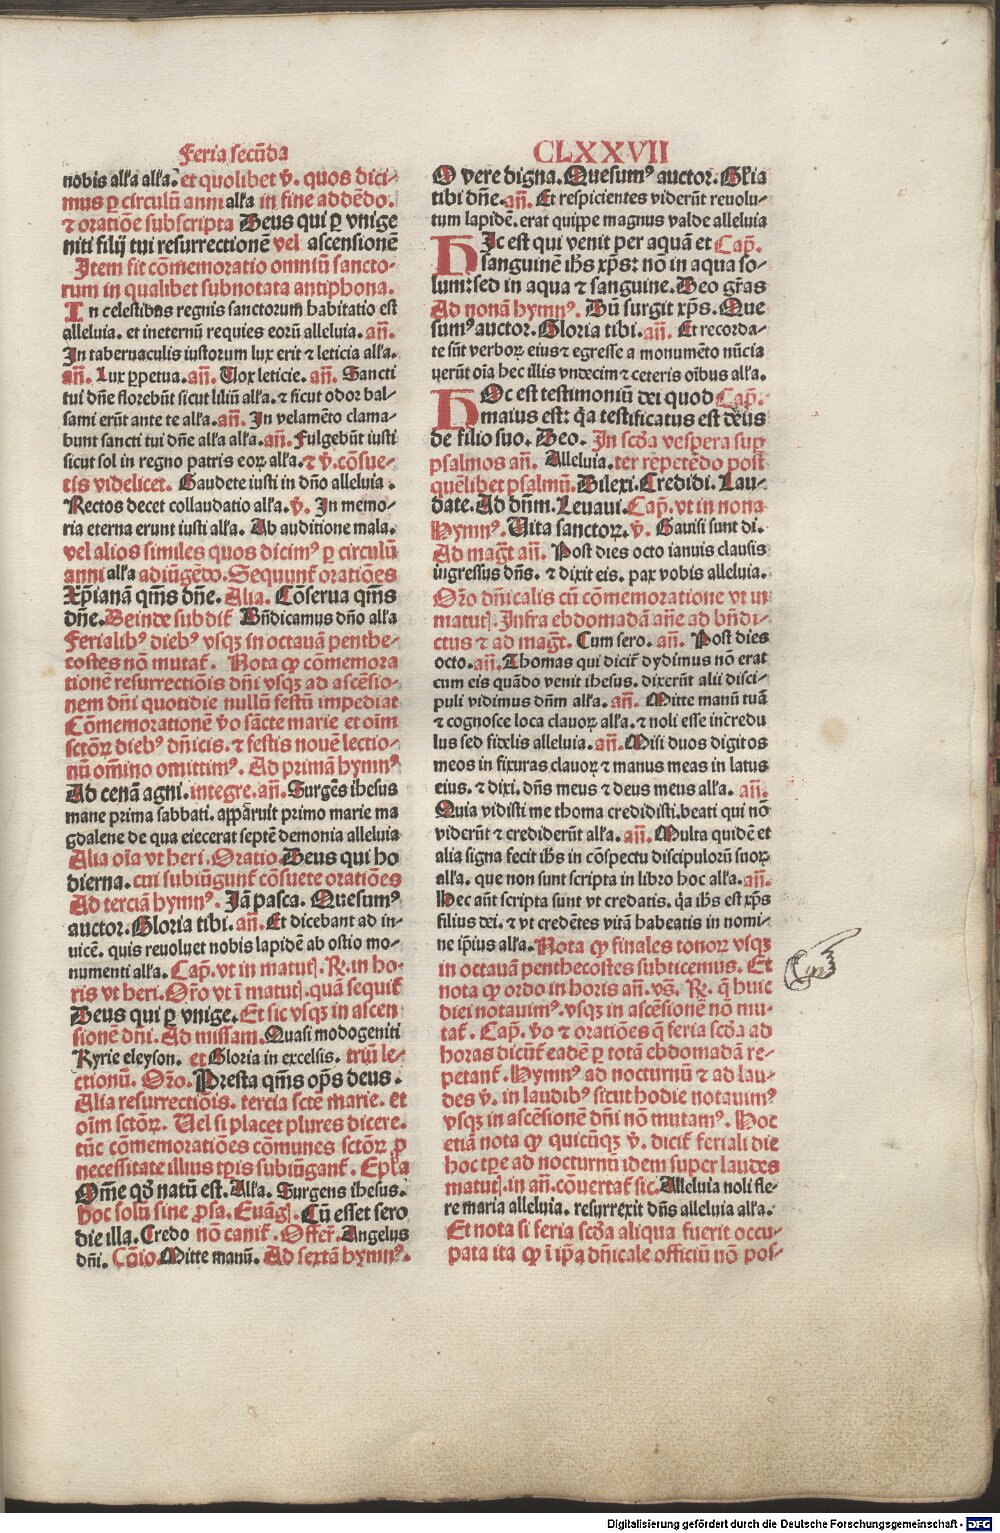 Feria secūda
nobis alľa alľa. et quolibet ꝟ. quos dici-
mus ꝑ circulū anni alľa in fine addēdo.
⁊ oratiōe subscripta Deus qui ꝑ vnige
niti filij tui resurrectionē vel ascensionē
Item fit cōmemoratio omniū sancto-
rum in qualibet subnotata antiphona.
In celestibus regnis sanctorum habitatio est
alleluia. et ineternū requies eorū alleluia. an̄.
In tabernaculis iustorum lux erit ⁊ leticia alľa.
an̄. Lux ꝑpetua. an̄. Uox leticie. an̄. Sancti
tui dn̄e florebūt sicut liliū alľa. ⁊ sicut odor bal-
sami erūt ante te alľa. an̄. In velamēto clama-
bunt sancti tui dn̄e alľa alľa. an̄. Fulgebūt iusti
sicut sol in regno patris eoꝝ alľa. ⁊ ꝟ. cōsue-
tis videlicet. Gaudete iusti in dn̄o alleluia.
Rectos decet collaudatio alľa. ꝟ. In memo-
ria eterna erunt iusti alľa. Ab auditione mala.
vel alios similes quos dicimꝰ ꝑ circulū
anni alľa adiūgēdo. Sequunt̄ oratiōes
Xp̄ianā qm̄s dn̄e. Alia. Cōserua qm̄s
dn̄e. Deinde subdit̄ Bn̄dicamus dn̄o alľa
Ferialibꝰ diebꝰ vsqꝫ in octauā penthe-
costes nō mutat̄. Nota ꝙ cōmemora
tionē resurrectiōis dn̄i vsqꝫ ad ascēsio-
nem dn̄i quotidie nullū festū impediat
Cōmemorationē v̄o sācte marie et oīm
sctōꝝ diebꝰ dn̄icis. ⁊ festis nouē lectio-
nū om̄ino omittimꝰ. Ad primā hymnꝰ
Ad cenā agni. integre. an̄. Surgēs ihesus
mane prima sabbati. apparuit primo marie ma
gdalene de qua eiecerat septē demonia alleluia
Alia oīa vt heri. Oratio. Deus qui ho
dierna. cui subiūgunt̄ cōsuete oratiōes
Ad terciā hymnꝰ. Iā pasca. Quesumꝰ
auctor. Gloria tibi. an̄. Et dicebant ad in-
uicē. quis reuoluet nobis lapidē ab ostio mo-
numenti alľa. Cap̄. vt in matut̄. R̄. in ho-
ris vt heri. Or̄o vt ī matut̄. quā sequit̄
Deus qui ꝑ vnige. Et sic vsqꝫ in ascen
sionē dn̄i. Ad missam. Quasi modogeniti
Kyrie eleyson. et Gloria in excelsis. triū le-
ctionū. Or̄o. Presta qm̄s op̄s deus.
Alia resurrectiōis. tercia scte marie. et
oīm sctōꝝ. Uel si placet plures dicere.
tūc cōmemoratiōes cōmunes sctōꝝ ꝓ
necessitate illius tp̄is subiūgant̄. Ep̄la
Om̄e qꝺ natū est. Alľa. Surgens ihesus.
hoc solū sine ꝓsa. Euāḡ. Cū esset sero
die illa. Credo nō canit̄. Offer̄. Angelus
dn̄i. Cōio. Mitte manū. Ad sextā hymnꝰ.
CLXXVII
O vere digna. Quesumꝰ auctor. Gľia
tibi dn̄e. an̄. Et respicientes viderūt reuolu-
tum lapidē. erat quippe magnus valde alleluia
HIc est qui venit per aquā et Cap̄.
sanguinē ihs xp̄s: nō in aqua so-
lum: sed in aqua ⁊ sanguine. Deo gr̄as
Ad nonā hymnꝰ. Dū surgit xp̄s. Que
sumꝰ auctor. Gloria tibi. an̄. Et recorda-
te sūt verboꝝ eius ⁊ egresse a monumēto nūcia
uerūt oīa hec illis vndecim ⁊ ceteris oībus alľa.
HOc est testimoniū dei quod Cap̄.
maius est: q̄a testificatus est deus
de filio suo. Deo. In scḏa vespera suꝑ
psalmos an̄. Alleluia. ter repetēdo post
quēlibet psalmū. Dilexi. Credidi. Lau-
date. Ad dn̄m. Leuaui. Cap̄. vt in nona
Hymnꝰ. Uita sanctoꝝ. ꝟ. Gauisi sunt di.
Ad maḡt an̄. Post dies octo ianuis clausis
ingressus dn̄s. ⁊ dixit eis. pax vobis alleluia.
Or̄o dn̄icalis cū cōmemoratione vt in
matut̄. Infra ebdomadā an̄e ad bn̄di-
ctus ⁊ ad maḡt. Cum sero. an̄. Post dies
octo. an̄. Thomas qui dicit̄ dydimus nō erat
cum eis quādo venit ihesus. dixerūt alii disci-
puli vidimus dn̄m alľa. an̄. Mitte manū tuā
⁊ cognosce loca clauoꝝ alľa. ⁊ noli esse incredu
lus sed fidelis alleluia. an̄. Misi duos digitos
meos in fixuras clauoꝝ ⁊ manus meas in latus
eius. ⁊ dixi. dn̄s meus ⁊ deus meus alľa. an̄.
Quia vidisti me thoma credidisti. beati qui nō
viderūt ⁊ crediderūt alľa. an̄. Multa quidē et
alia signa fecit ihs in cōspectu discipulorū suoꝝ
alľa. que non sunt scripta in libro hoc alľa. an̄.
Hec aūt scripta sunt vt credatis. q̄a ihs est xp̄s
filius dei. ⁊ vt credētes vitā habeatis in nomi-
ne ip̄ius alľa. Nota ꝙ finales tonoꝝ vsqꝫ
in octauā penthecostes subticemus. Et
nota ꝙ ordo in horis an̄. vs̄. R̄. q̄ huic
diei notauimꝰ. vsqꝫ in ascēsionē nō mu-
tat̄. Cap̄. v̄o ⁊ oratiōes q̄ feria scḏa ad
horas dicūt̄ eadē ꝑ totā ebdomadā re-
petant̄. Hymnꝰ ad nocturnū ⁊ ad lau-
des ꝟ. in laudibꝰ sicut hodie notauimꝰ
vsqꝫ in ascēsionē dn̄i nō mutamꝰ. Hoc
etiā nota ꝙ quicūqꝫ ꝟ. dicit̄ feriali die
hoc tp̄e ad nocturnū idem super laudes
matut̄. in an̄. cōuertat̄ sic. Alleluia noli fle-
re maria alleluia. resurrexit dn̄s alleluia alľa.
Et nota si feria scḏa aliqua fuerit occu-
pata ita ꝙ ī ip̄a dn̄icale officiū nō pos-
Digitalisierung gefördert durch die Deutsche Forschungsgemeinschaft - DFG